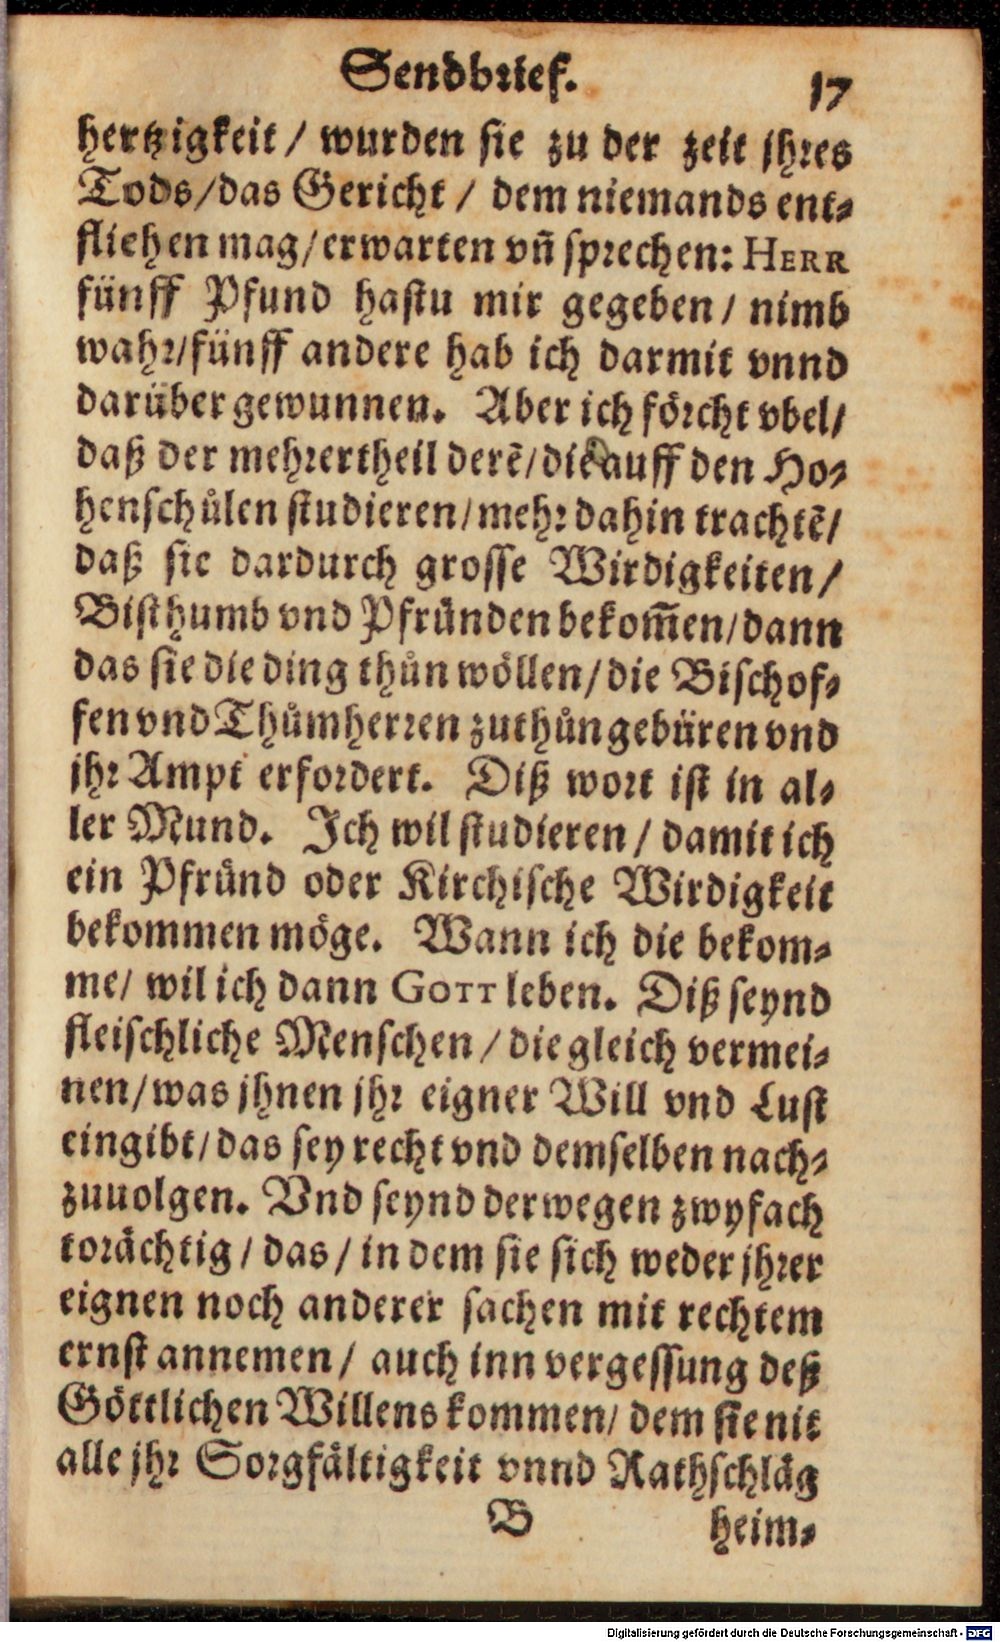 Sendbrief. 17
hertzigkeit / wurden sie zu der zeit jhres
Tods/das Gericht / dem niemands ent-
fliehen mag/erwarten vñ sprechen: HERR
fünff Pfund hastu mir gegeben / nimb
wahr/fünff andere hab ich darmit vnnd
darüber gewunnen. Aber ich förcht vbel/
daß der mehrertheil derẽ/die auff den Ho-
henschůlen studieren/mehr dahin trachtẽ/
daß sie dardurch grosse Wirdigkeiten/
Bisthumb vnd Pfründen bekom̃en/dann
das sie die ding thůn wöllen/die Bischof-
fen vnd Thůmherren zuthůn gebüren vnd
jhr Ampt erfordert. Diß wort ist in al-
ler Mund. Ich wil studieren / damit ich
ein Pfründ oder Kirchische Wirdigkeit
bekommen möge. Wann ich die bekom-
me/ wil ich dann GOTT leben. Diß seynd
fleischliche Menschen / die gleich vermei-
nen/was jhnen jhr eigner Will vnd Lust
eingibt/das sey recht vnd demselben nach-
zuuolgen. Vnd seynd derwegen zwyfach
torächtig / das / in dem sie sich weder jhrer
eignen noch anderer sachen mit rechtem
ernst annemen / auch inn vergessung deß
Göttlichen Willens kommen/ dem sie nit
alle jhr Sorgfältigkeit vnnd Rathschläg
B heim-
Digitalisierung gefördert durch die Deutsche Forschungsgemeinschaft - DFG